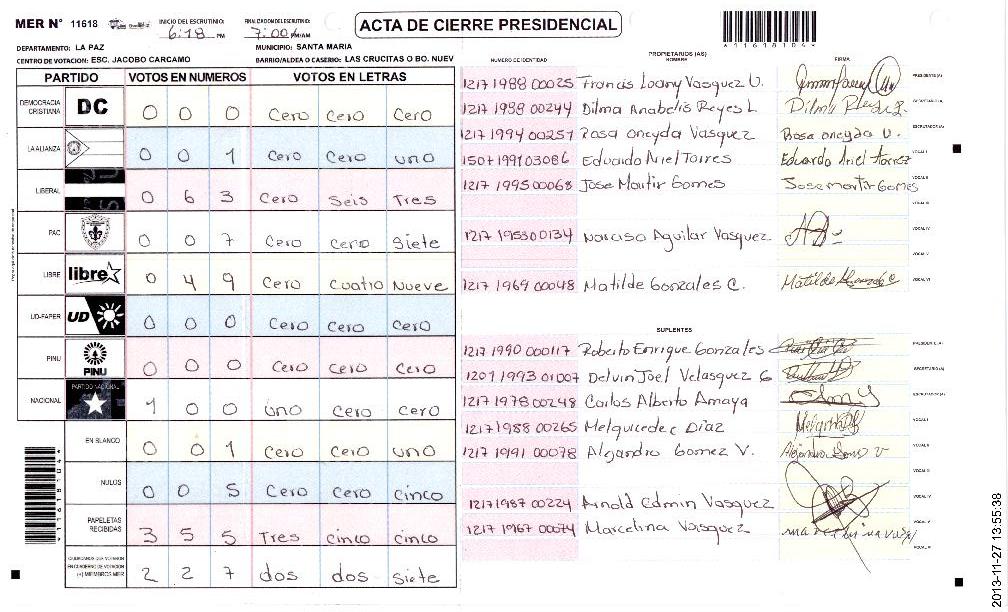 MER N° 11618
INICIO DEL ESCRUTINIO: 6:18 PM
FINALIZACION DEL ESCRUTINIO: 7:00 PM/AM
ACTA DE CIERRE PRESIDENCIAL
*11618104*
DEPARTAMENTO: LA PAZ
MUNICIPIO: SANTA MARIA
CENTRO DE VOTACION: ESC. JACOBO CARCAMO
BARRIO/ALDEA O CASERIO: LAS CRUCITAS O BO. NUEV
PARTIDO VOTOS EN NUMEROS VOTOS EN LETRAS
DEMOCRACIA CRISTIANA DC 0 0 0 Cero Cero Cero
LA ALIANZA 0 0 1 Cero Cero uno
LIBERAL 0 6 3 Cero Seis Tres
PAC 0 0 7 Cero cero Siete
LIBRE libre 0 4 9 Cero cuatro Nueve
UD-FAPER UD 0 0 0 Cero Cero Cero
PINU PINU 0 0 0 Cero Cero Cero
NACIONAL PARTIDO NACIONAL 1 0 0 uno Cero cero
EN BLANCO 0 0 1 Cero Cero uno
NULOS 0 0 5 Cero Cero cinco
PAPELETAS RECIBIDAS 3 5 5 Tres cinco cinco
CIUDADANOS QUE VOTARON EN CUADERNO DE VOTACION (+) MIEMBROS MER 2 2 7 dos dos siete
PROPIETARIOS (AS)
NUMERO DE IDENTIDAD NOMBRE FIRMA
1217 1988 00025 Francis Loany Vasquez V. PRESIDENTE (A)
1217 1988 00244 Dilma Anabelis Reyes L. SECRETARIO (A)
1217 1994 00257 Rosa oneyda Vasquez Rosa oneyda V. ESCRUTADOR (A)
1501 1991 03086 Eduardo Ariel Torres Eduardo Ariel torrez VOCAL I
1217 1995 00068 Jose Martir Gomes Jose martir Gomes VOCAL II
VOCAL III
1217 1953 00134 Narciso Aguilar Vasquez VOCAL IV
VOCAL V
1217 1969 00048 Matilde Gonzales C. VOCAL VI
SUPLENTES
1217 1990 000117 Roberto Enrique Gonzales PRESIDENTE (A)
1201 1993 01007 Delvin Joel Velasquez G SECRETARIO (A)
1217 1978 00248 Carlos Alberto Amaya ESCRUTADOR (A)
1217 1988 00265 Melquicedec Díaz VOCAL I
1217 1991 00078 Alejandro Gomez V. VOCAL II
VOCAL III
1217 1987 00224 Arnold Edmin Vasquez VOCAL IV
1217 1967 00074 Marcelina Vasquez VOCAL V
VOCAL VI
2013-11-27 13:55:38